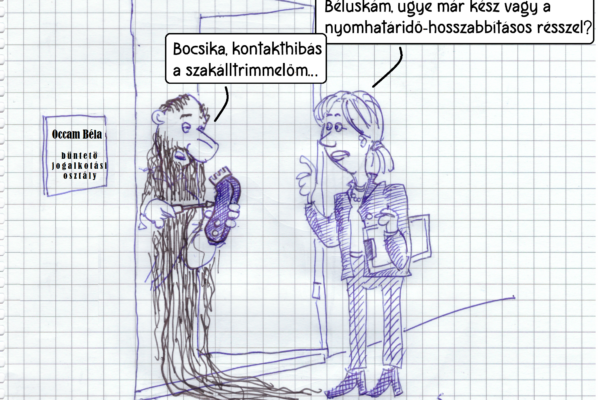 Béluskám, ugye már kész vagy a
nyomhatáridő-hosszabbításos résszel?
Bocsika, kontakthibás
a szakálltrimmelőm...
Occam Béla
büntető
jogalkotási
osztály